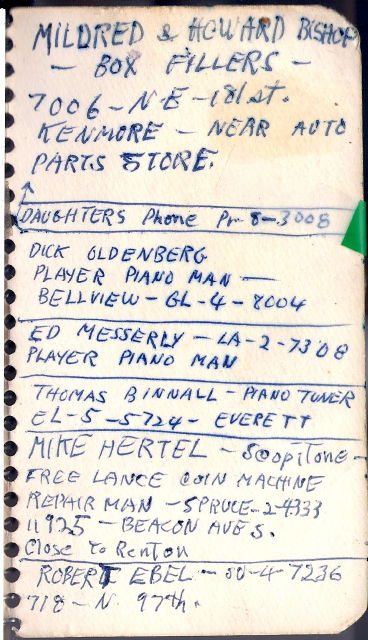 MILDRED & HOWARD BISHOP
- BOX FILLERS -
7006 - N-E - 181 st.
KENMORE - NEAR AUTO
PARTS STORE.
DAUGHTERS Phone Pr 8-3008
DICK OLDENBERG
PLAYER PIANO MAN -
BELLVIEW - GL-4-7004
ED MESSERLY - LA-2-7308
PLAYER PIANO MAN
THOMAS BINNALL - PIANO TUNER
EL-5-5724 - EVERETT
MIKE HERTEL - ScopiTone -
FREE LANCE COIN MACHINE
REPAIR MAN - SPRUCE-2-4333
11925 - BEACON AVE S.
Close To Renton
ROBERT EBEL - SU-4-7236
718 - N. 97th.